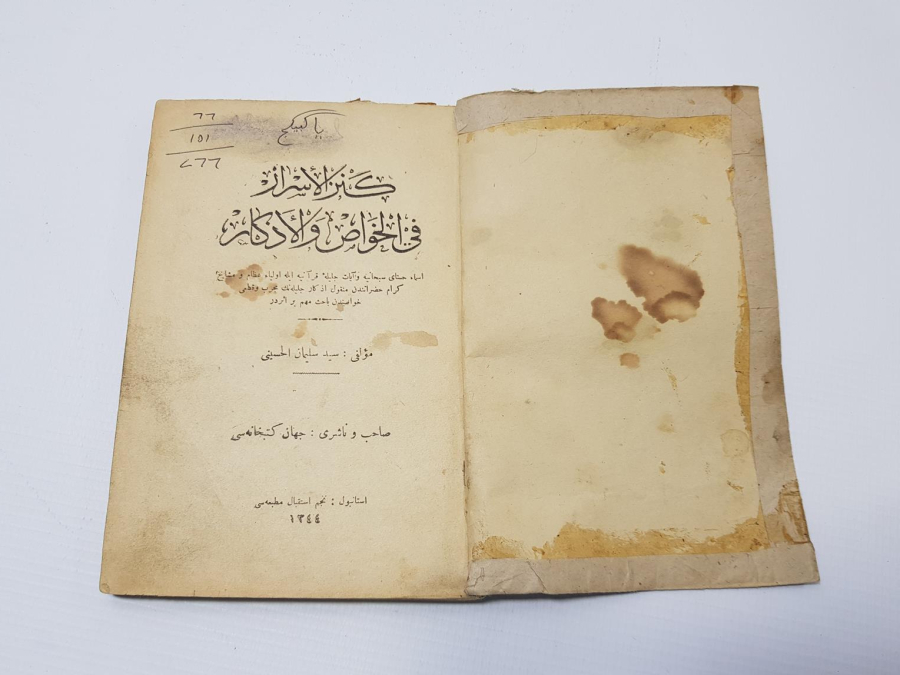 ٦٦
١٥١
٢٦٦
يا كبيكج
كنز الأسرار
في الخواص والأذكار
اسماء حسنای سبحانیه و آیات جلیلهٔ قرآنیه ایله اولیاء عظام و مشایخ
كرام حضراتندن منقول اذكار جلیله‌نك مجرب و قطعی
خواصندن باحث مهم بر اثردر
مؤلفی : سید سلیمان الحسینی
صاحب و ناشری : جهان كتبخانه‌سی
استانبول : نجم استقبال مطبعه‌سی
١٣٤٤